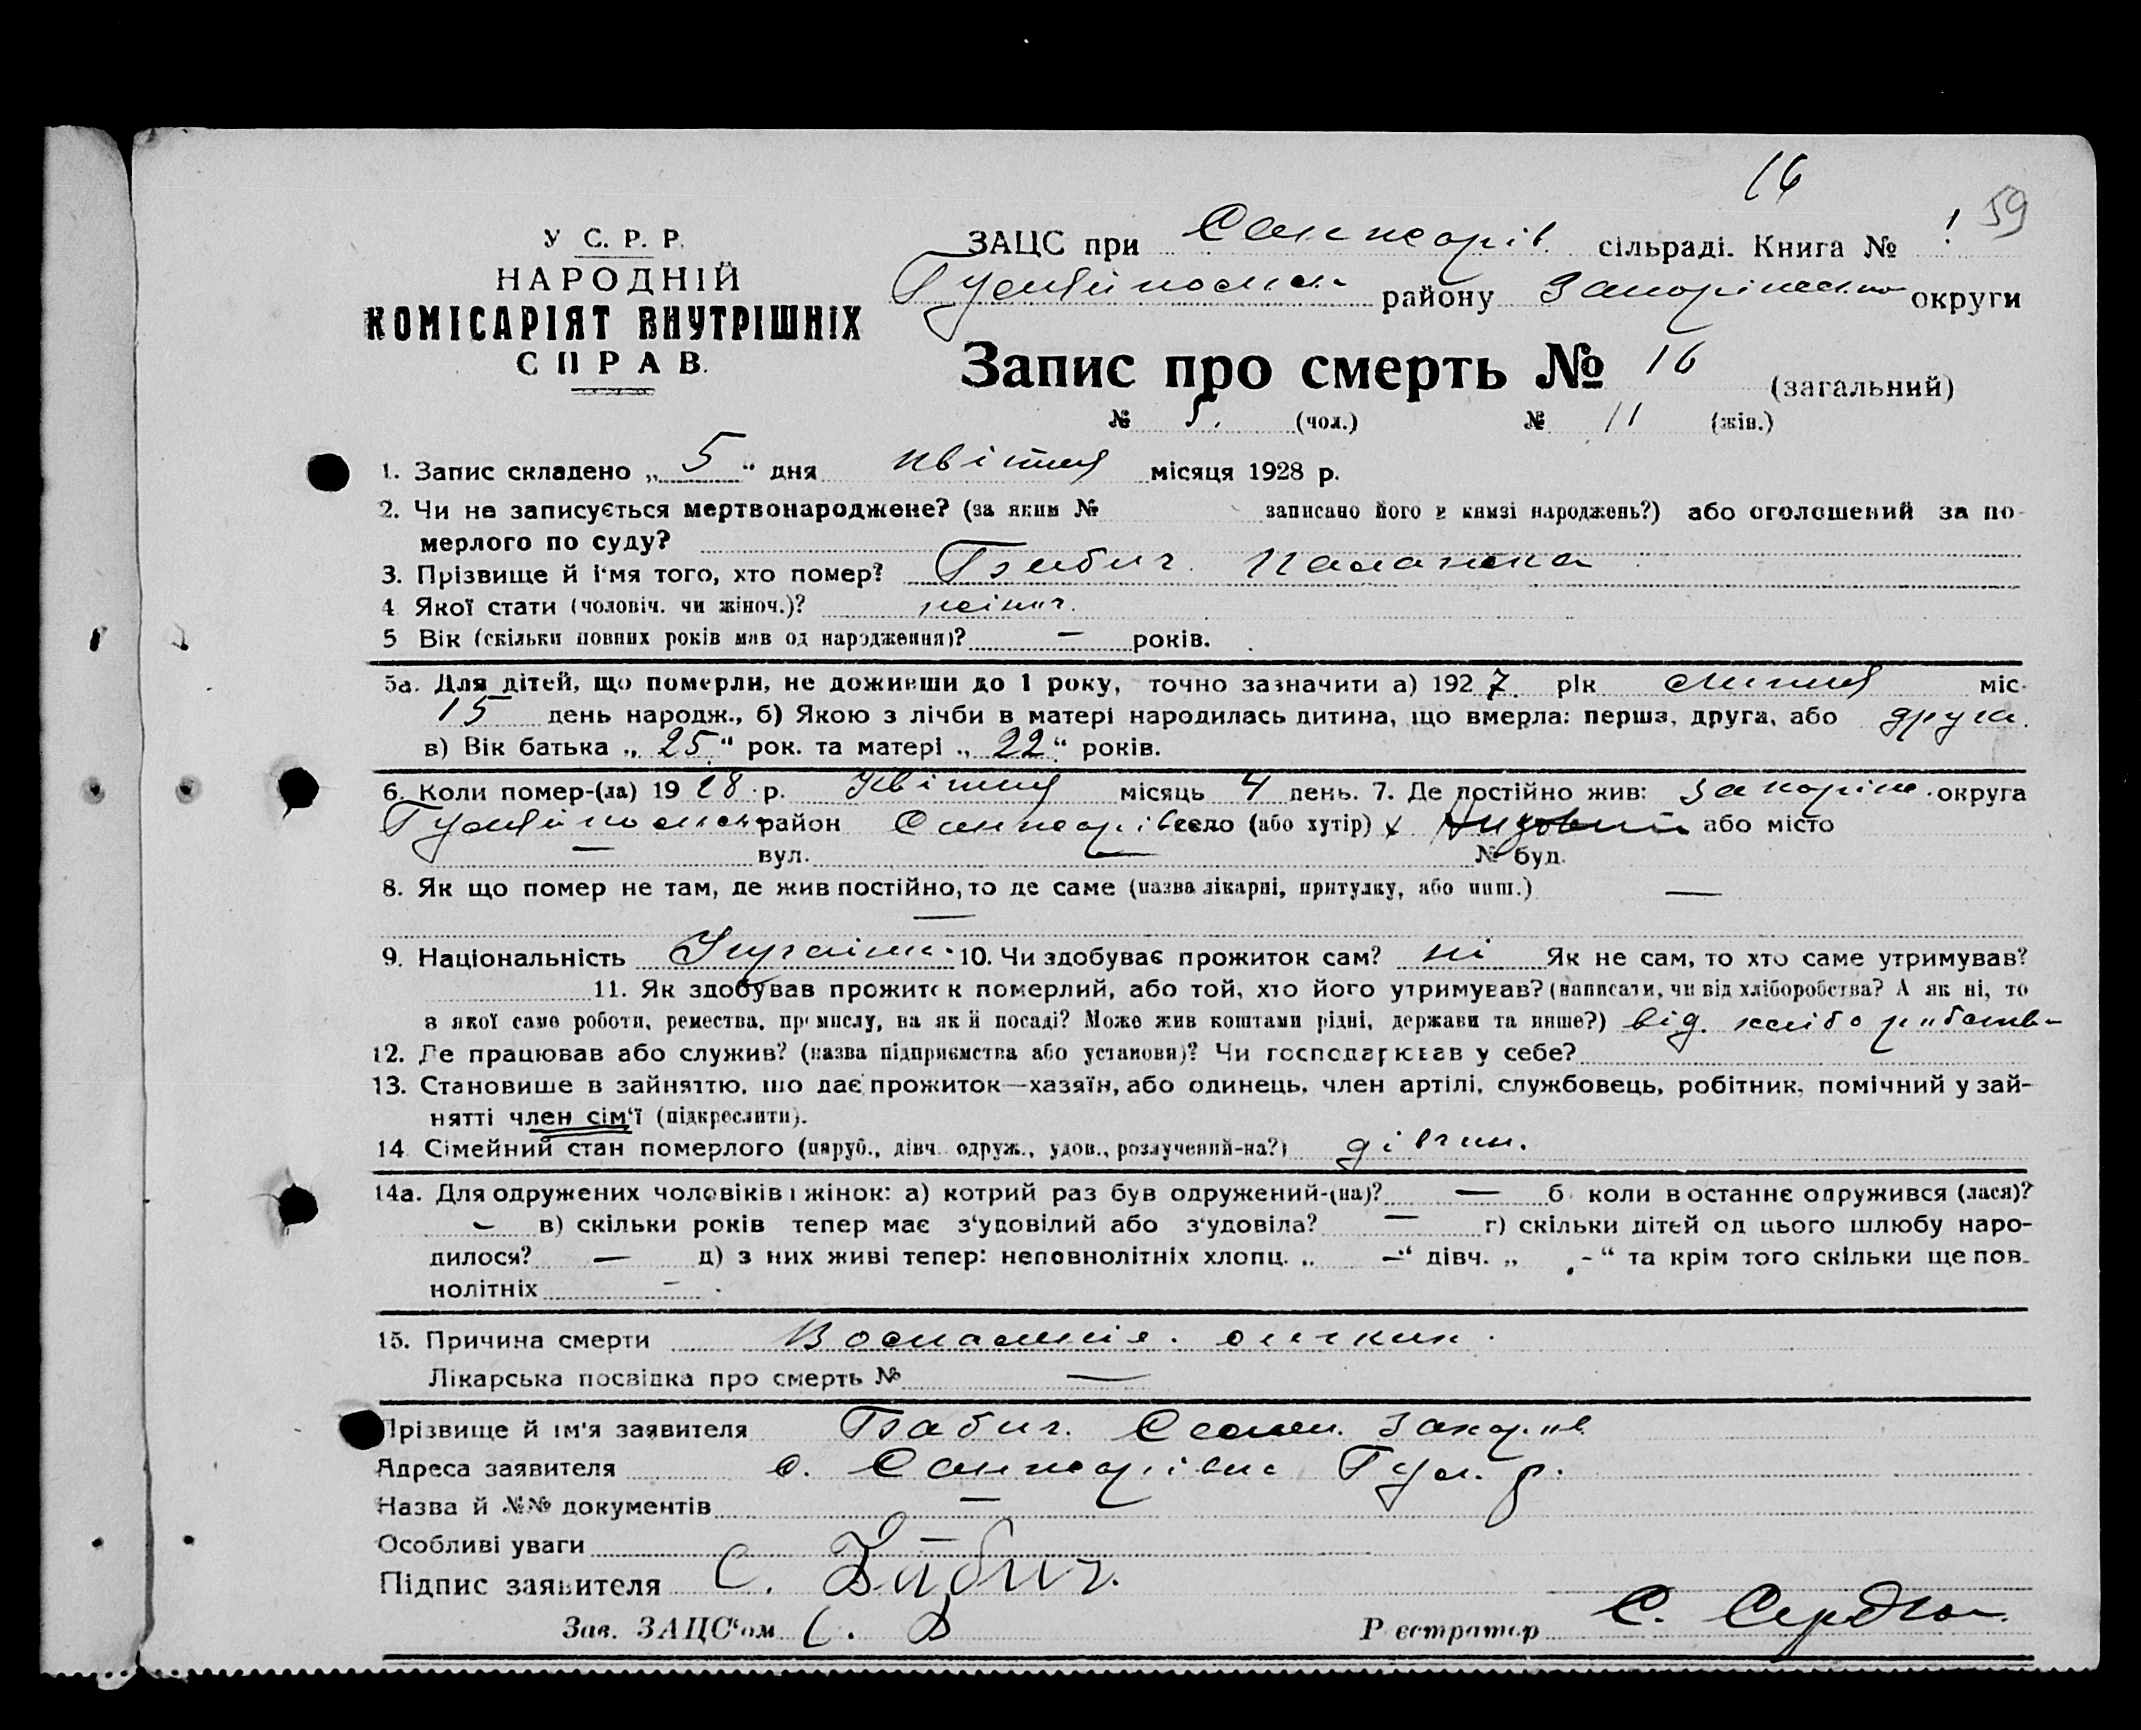 16
59
У С. Р. Р.
НАРОДНІЙ
КОМІСАРІЯТ ВНУТРІШНІХ
СПРАВ.
ЗАЦС при Санжарів. сільраді. Книга № 1
Гуляйпольськ району Запорізьк округи
Запис про смерть № 16 (загальний)
№ 5. (чол.) № 11 (жін.)
1. Запис складено „ 5 “ дня квітня місяця 1928 р.
2. Чи не записується мертвонароджене? (за яким № записано його в книзі народжень?) або оголошений за по-
мерлого по суду?
3. Прізвище й ім'я того, хто помер? Палажка
4 Якої стати (чоловіч. чи жіноч.)? жіноч.
5 Вік (скільки повних років мав од народження)? — років.
5а. Для дітей, що померли, не доживши до 1 року, точно зазначити а) 192 7. рік липня міс.
15 день народж., б) Якою з лічби в матері народилась дитина, що вмерла: перша, друга, або друга.
в) Вік батька „ 25 “ рок. та матері „ 22 “ років.
6. Коли помер-(ла) 19 28 р. Квітня місяць 4 день. 7. Де постійно жив: Запоріж. округа
Гуляйпольськ район Санжарів село (або хутір) х або місто
— вул. — № буд.
8. Як що помер не там, де жив постійно, то де саме (назва лікарні, притулку, або инш.) —
—
9. Національність Україн. 10. Чи здобуває прожиток сам? ні Як не сам, то хто саме утримував?
11. Як здобував прожиток померлий, або той, хто його утримував? (написати, чи від хліборобства? А як ні, то
з якої саме роботи, ремества, промислу, на якій посаді? Може жив коштами рідні, держави та инше?) від. хліборобства
12. Де працював або служив? (назва підприємства або установи)? Чи господарював у себе?
13. Становище в зайняттю, що дає прожиток—хазяїн, або одинець, член артілі, службовець, робітник, помічний у зай-
нятті член сім'ї (підкреслити).
14 Сімейний стан померлого (паруб., дівч. одруж., удов., розлучений-на?) дівчин.
14а. Для одружених чоловіків і жінок: а) котрий раз був одружений-(на)? — б коли в останнє одружився (лася)?
— в) скільки років тепер має з'удовілий або з'удовіла? — г) скільки дітей од цього шлюбу наро-
дилося? — д) з них живі тепер: неповнолітніх хлопц. „ —“ дівч. „ - “ та крім того скільки ще пов-
нолітніх — .
15. Причина смерти Воспаления. 
Лікарська посвідка про смерть № —
Прізвище й ім'я заявителя Захарів
Адреса заявителя с. Санжарівка Гул. р.
Назва й №№ документів —
Особливі уваги —
Підпис заявителя С.
Зав. ЗАЦС'ом С.
Реєстратор С. Сердюк